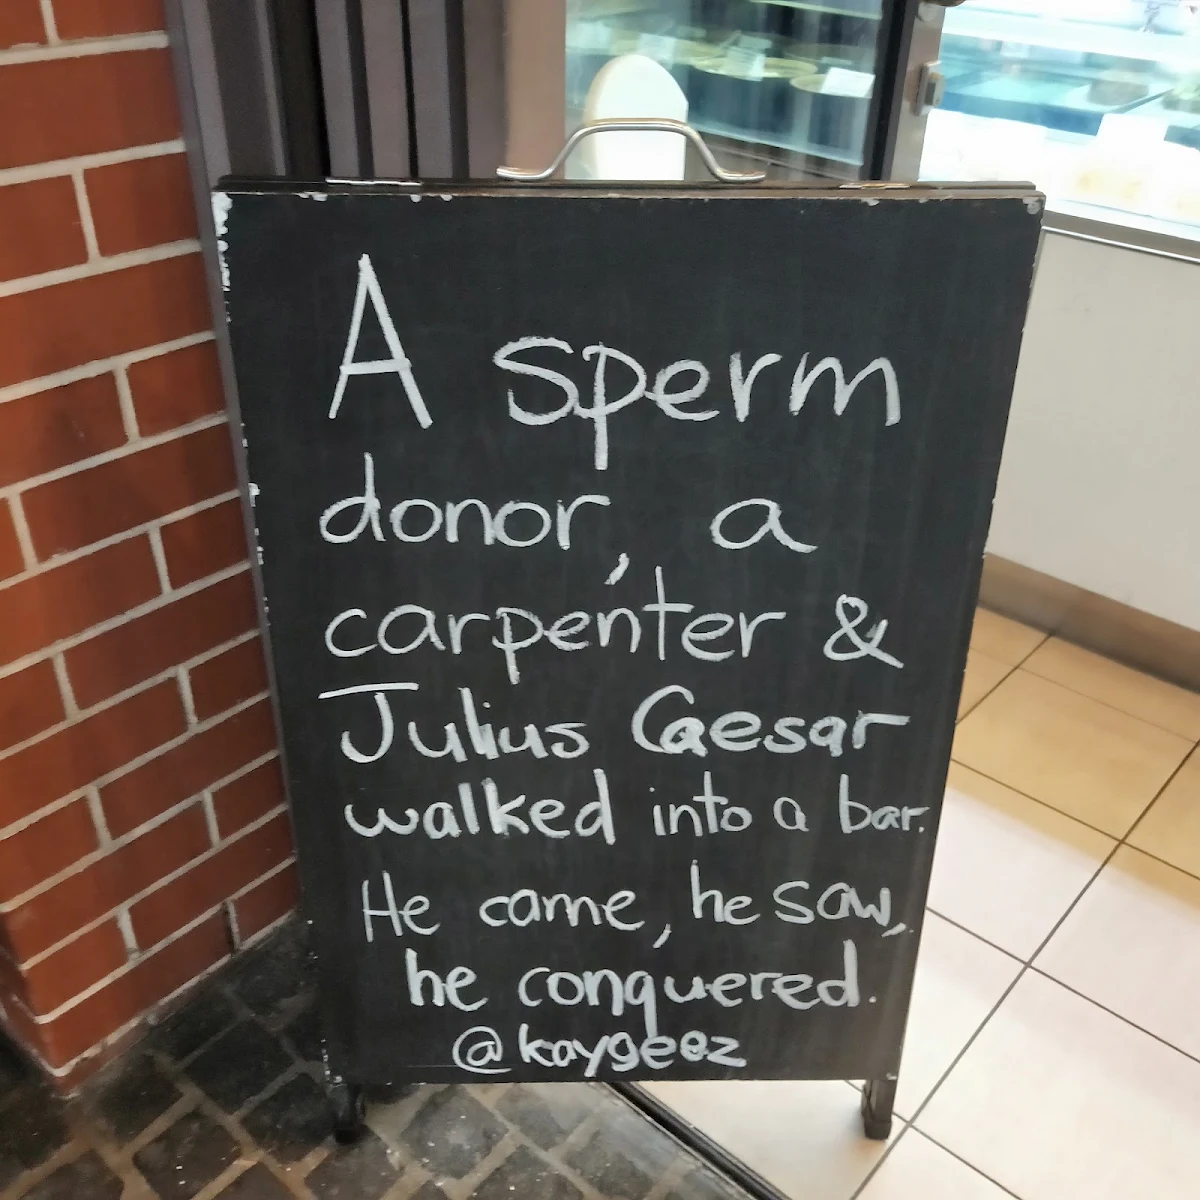 A sperm
donor, a
carpenter &
Julius Caesar
walked into a bar.
He came, he saw,
he conquered.
@kaygeez